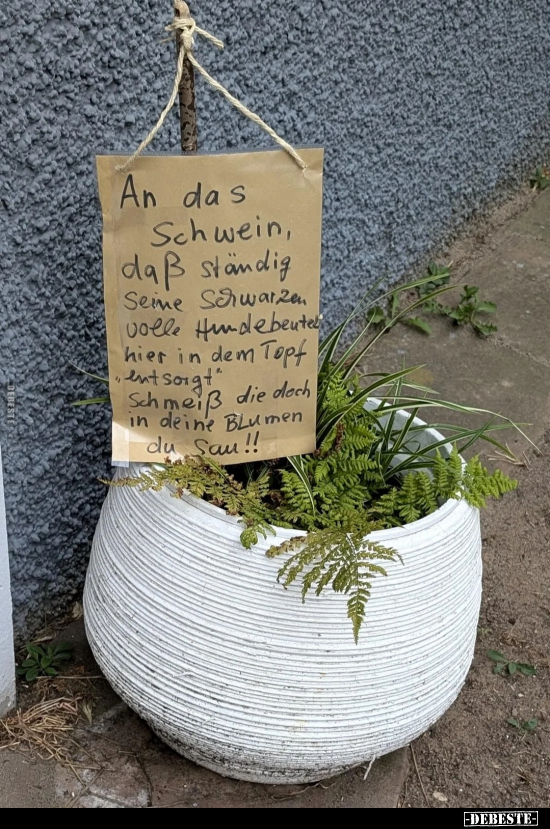 An das
Schwein,
daß ständig
seine schwarzen
volle Hundebeutel
hier in dem Topf
"entsorgt"
Schmeiß die doch
in deine Blumen
du Sau!!
DEBESTE
-DEBESTE-